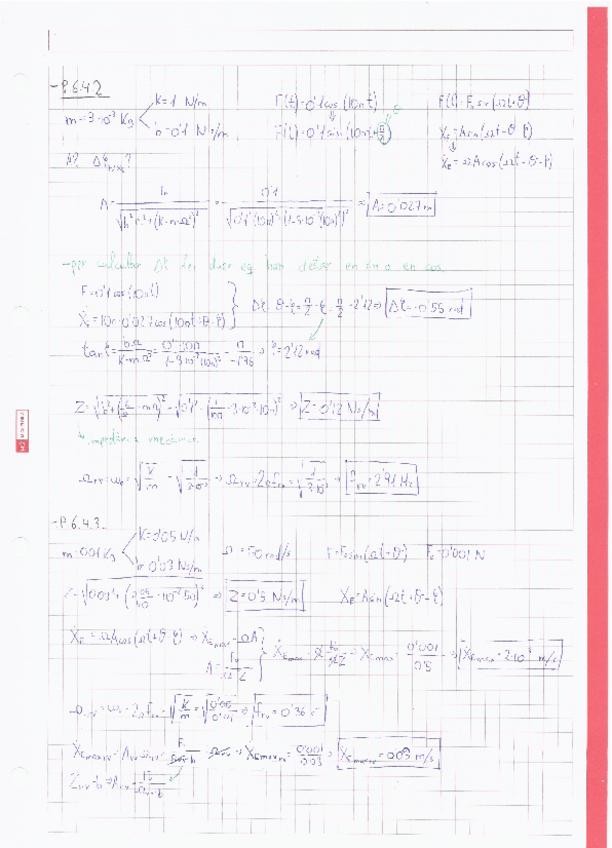 - P.6.4.2
m = 3·10⁻³ Kg < K = 1 N/m
b = 0'1 N s/m
F(t) = 0'1 cos(10πt)
F(t) = 0'1 sin(10πt + π/2)
F(t) = F₀ sin(Ωt + θ)
Xₑ = A sin(Ωt + θ - φ)
Ẋₑ = ΩA cos(Ωt + θ - φ)
A = F₀ / √(b²Ω² + (K - mΩ²)²) = 0'1 / √(0'1²(10π)² + (1 - 3·10⁻³(10π)²)²) → A = 0'027 m
- par calcular Δφ las dues eq han d'estar en sin o en cos.
F = 0'1 cos(10πt)
Ẋₑ = 10π·0'027 cos(10πt + θ - φ)
Δφ = θ - φ = π/2 - φ = π/2 - 2'12 ⇒ Δφ = -0'55 rad
tan φ = bΩ / (K - mΩ²) = 0'1·10π / (1 - 3·10⁻³(10π)²) = π / -1'96 ⇒ φ = 2'12 rad
Z = √(b² + (K/Ω - mΩ)²) = √(0'1² + (1/10π - 3·10⁻³·10π)²) ⇒ Z = 0'12 Ns/m
↳ impedància mecànica.
= ω₀ = √(K/m) = √(1/3·10⁻³) → = 2πf = √(1/3·10⁻³) → = 2'91 Hz
- P 6.4.3.
m = 0'01 Kg < K = 0'05 N/m
b = 0'03 Ns/m
Ω = 50 rad/s
F = F₀ sin(Ωt + θ)
F₀ = 0'001 N
Z = √(0'03² + (0'05/50 - 10⁻²·50)²) ⇒ Z = 0'5 Ns/m
Xₑ = A sin(Ωt + θ - φ)
Ẋₑ = ΩA cos(Ωt + θ - φ) ⇒ Ẋₑmax = ΩA
A = F₀ / ΩZ
Ẋₑmax = Ω F₀/ΩZ = Ẋₑmax = 0'001 / 0'5 ⇒ Ẋₑmax = 2·10⁻³ m/s
= ω₀ = 2πf = √(K/m) = √(0'05/0'01) ⇒ = 0'36 s⁻¹
⇒ = 0'001 / 0'03 ⇒ = 0'03 m/s